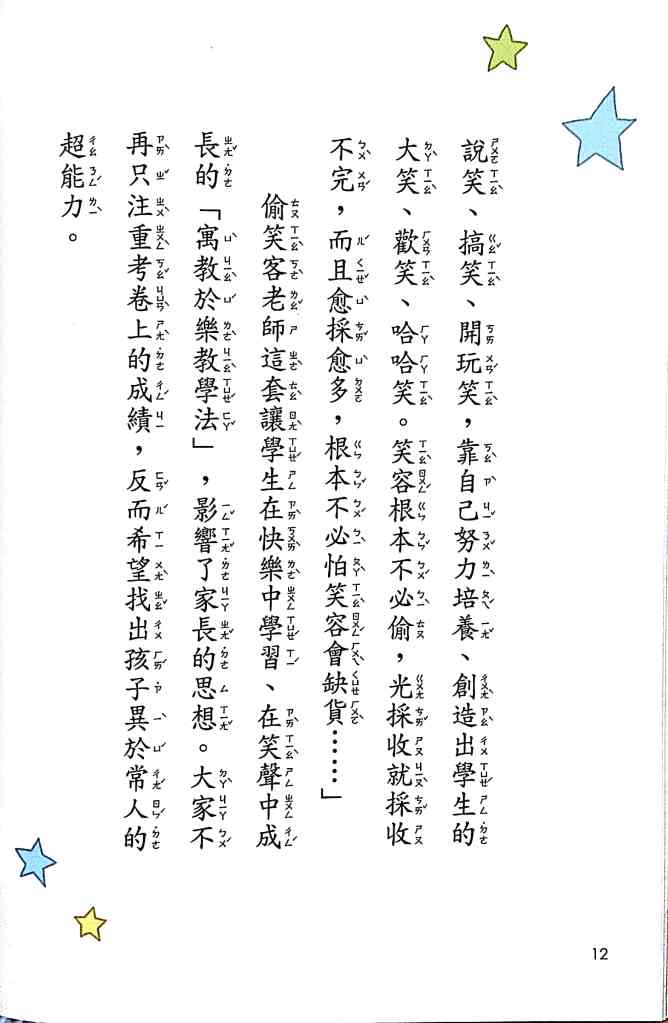 說笑、搞笑、開玩笑，靠自己努力培養、創造出學生的
大笑、歡笑、哈哈笑。笑容根本不必偷，光採收就採收
不完，而且愈採愈多，根本不必怕笑容會缺貨……」
偷笑客老師這套讓學生在快樂中學習、在笑聲中成
長的「寓教於樂教學法」，影響了家長的思想。大家不
再只注重考卷上的成績，反而希望找出孩子異於常人的
超能力。
12